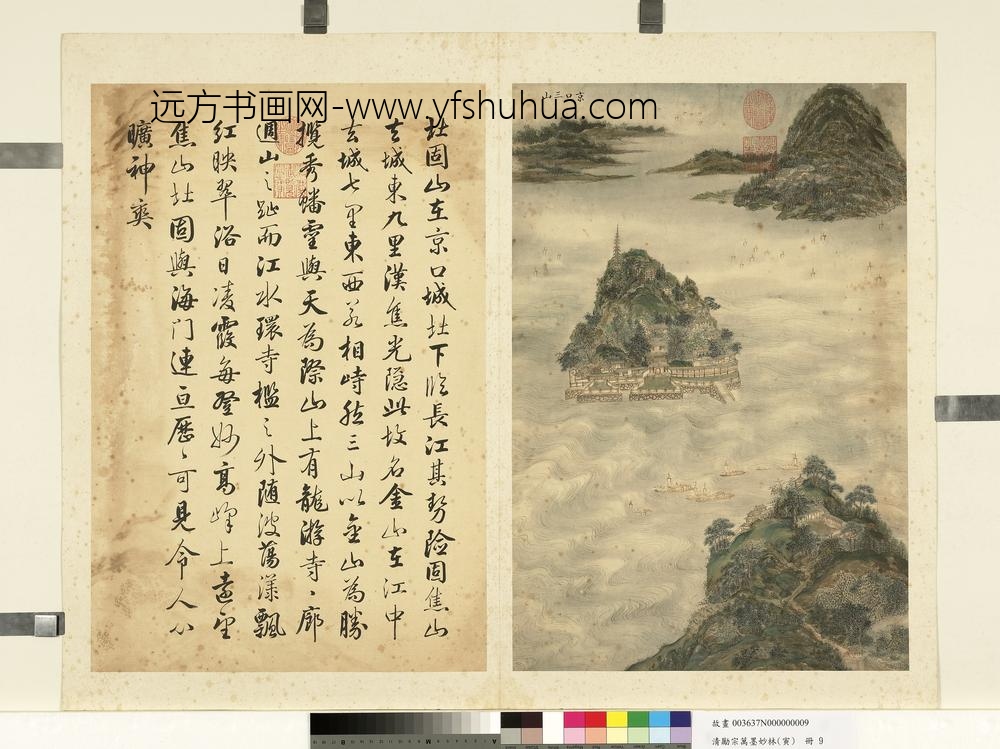 远方书画网-www.yfshuhua.com
京口三山
北固山在京口城北下临長江其势险固焦山
去城東九里漢焦光隐此故名金山在江中
去城七里東西相峙然三山以金山為勝
攬秀蟠靈與天為際山上有龍游寺〻廊
週山之趾而江水環寺檻之外随波蕩漾飄
紅映翠浴日凌霞每登妙高峰上遠望
焦山北固與海门連亘歷〻可見令人心
曠神爽
故畫 003637N000000009
清勵宗萬墨妙林(寅) 冊 9